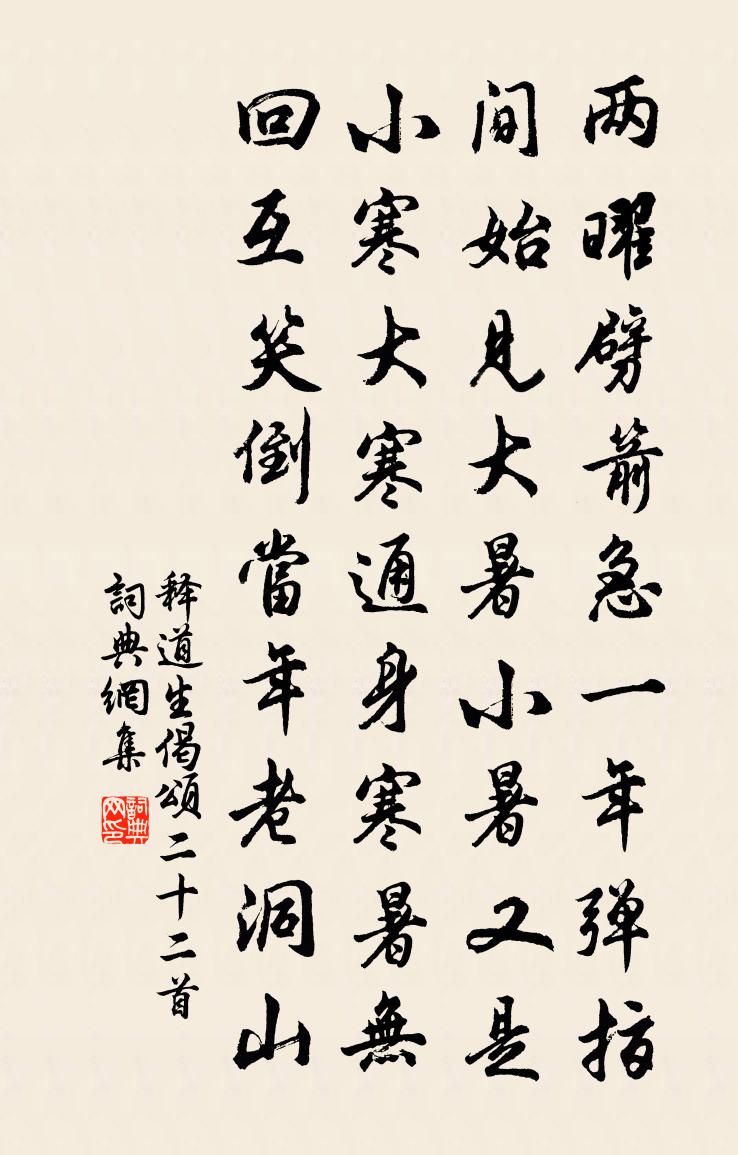 两曜劈箭急一年弹指
间始见大暑小暑又是
小寒大寒通身寒暑無
回互笑倒當年老洞山
释道生偈頌二十二首
詞典網集
詞典网印